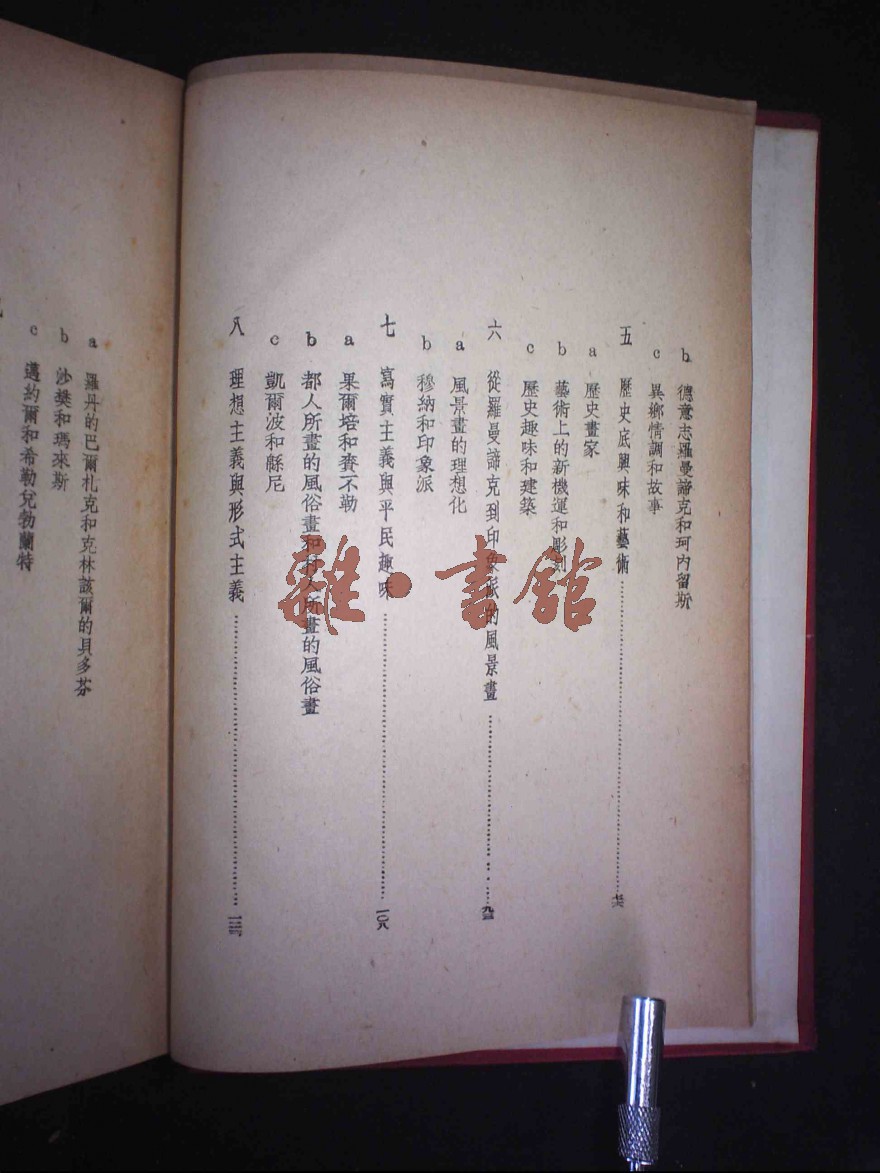 b 德意志羅曼諦克和珂內留斯
c 異鄉情調和故事
五 歷史底興味和藝術
a 歷史畫家
b 藝術上的新機運和彫刻
c 歷史趣味和建築
六 從羅曼諦克到印象派的風景畫 九三
a 風景畫的理想化
b 穆納和印象派
七 寫實主義與平民趣味 一〇八
a 果爾培和賚不勒
b 都人所畫的風俗畫和村人所畫的風俗畫
c 凱爾波和縣尼
八 理想主義與形式主義
a 羅丹的巴爾札克和克林該爾的貝多芬
b 沙樊和瑪來斯
c 邁約爾和希勒兌勃蘭特
雜·書館